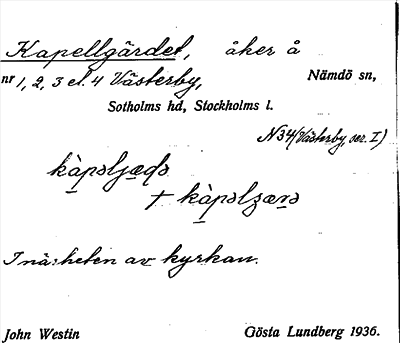 Kapellgärdet, åker å
nr 1, 2, 3 el. 4 Västerby, Nämdö sn,
Sotholms hd, Stockholms l.
N34 (Västerby, ser. I)
I närheten av kyrkan.
John Westin Gösta Lundberg 1936.